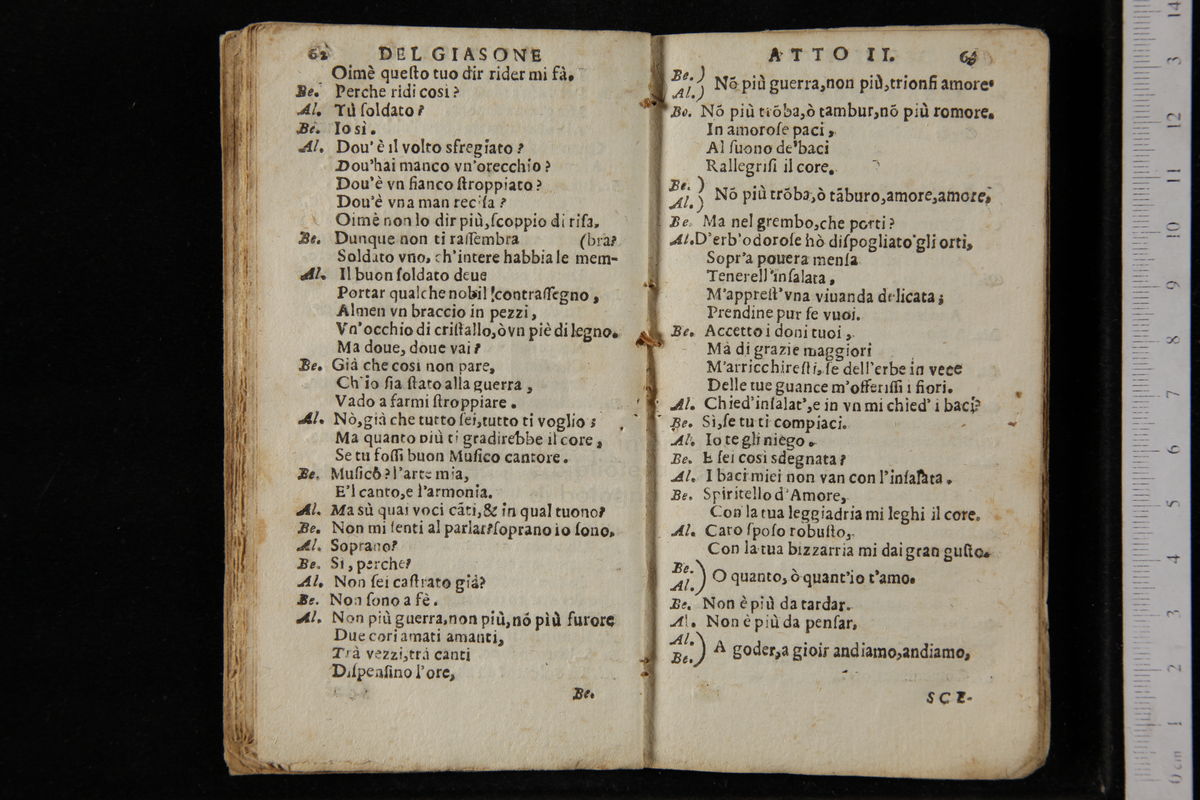 62 DEL GIASONE
Oimè queſto tuo dir rider mi fà.
Be. Perche ridi così?
Al. Tù ſoldato?
Be. Io sì.
Al. Dou' è il volto sfregiato?
Dou'hai manco vn'orecchio?
Dou'è vn fianco ſtroppiato?
Dou'è vna man reciſa?
Oimè non lo dir più, ſcoppio di riſa.
Be. Dunque non ti raſſembra (bra?
Soldato vno, ch'intere habbia le mem-
Al. Il buon ſoldato deue
Portar qualche nobil contraſſegno,
Almen vn braccio in pezzi,
Vn'occhio di criſtallo, ò vn piè di legno.
Ma doue, doue vai?
Be. Già che così non pare,
Ch'io ſia ſtato alla guerra,
Vado a farmi ſtroppiare.
Al. Nò, già che tutto ſei, tutto ti voglio;
Ma quanto più ti gradirebbe il core,
Se tu foſſi buon Muſico cantore.
Be. Muſico? l'arte mia,
E'l canto, e l'armonia.
Al. Ma sù quai voci cãti, & in qual tuono?
Be. Non mi ſenti al parlar? ſoprano io ſono.
Al. Soprano?
Be. Sì, perche?
Al. Non ſei caſtrato già?
Be. Non ſono a fè.
Al. Non più guerra, non più, nõ più furore
Due cori amati amanti,
Trà vezzi, trà canti
Diſpenſino l'ore,
Be.
ATTO II. 63
Be.)
Al.) Nõ più guerra, non più, trionfi amore.
Be. Nõ più trõba, ò tambur, nõ più romore.
In amoroſe paci,
Al ſuono de' baci
Rallegriſi il core.
Be.)
Al.) Nõ più trõba, ò tãburo, amore, amore,
Be. Ma nel grembo, che porti?
Al. D'erb'odoroſe hò diſpogliato gli orti,
Sopr'a pouera menſa
Tenerell'inſalata,
M'appreſt'vna viuanda delicata;
Prendine pur ſe vuoi.
Be. Accetto i doni tuoi,
Mà di grazie maggiori
M'arricchireſti, ſe dell'erbe in vece
Delle tue guance m'offeriſſi i fiori.
Al. Chied'inſalat', e in vn mi chied' i baci?
Be. Sì, ſe tu ti compiaci.
Al. Io te gli niego.
Be. E ſei così sdegnata?
Al. I baci miei non van con l'inſalata.
Be. Spiritello d'Amore,
Con la tua leggiadria mi leghi il core.
Al. Caro ſpoſo robuſto,
Con la tua bizzarria mi dai gran guſto.
Be.)
Al.) O quanto, ò quant'io t'amo.
Be. Non è più da tardar.
Al. Non è più da penſar,
Al.)
Be.) A goder, a gioir andiamo, andiamo,
SCE-